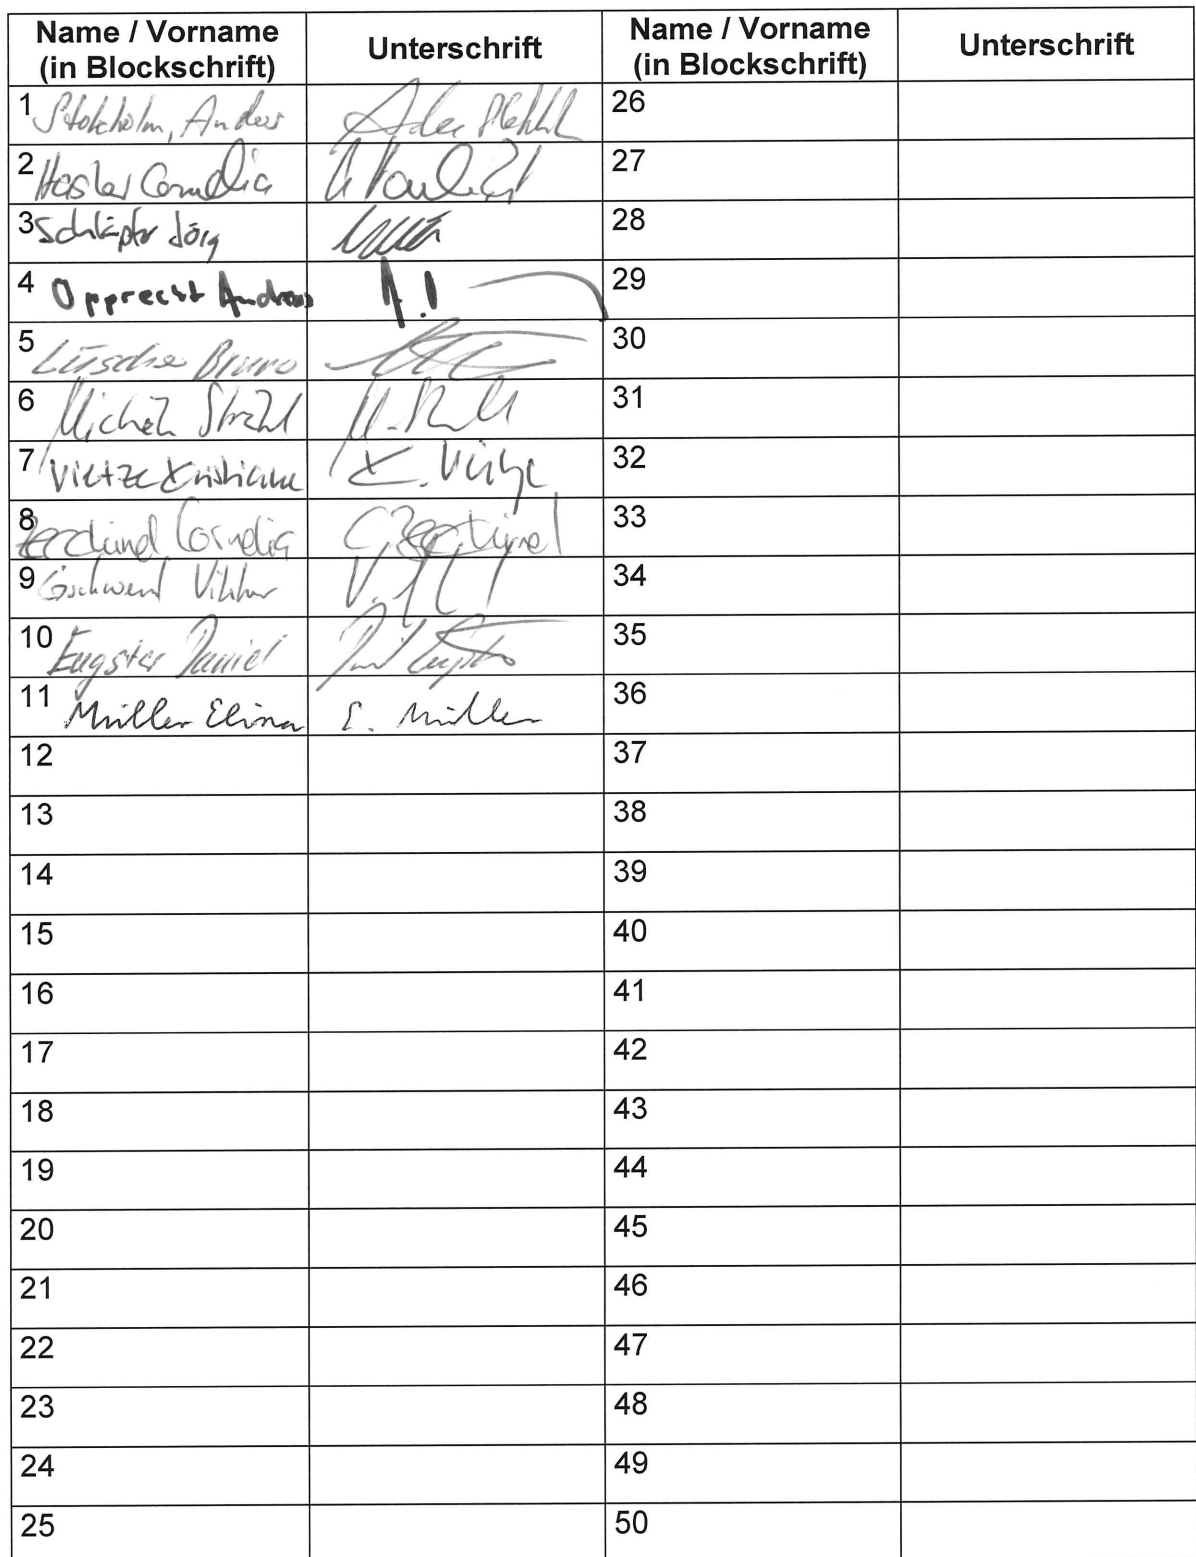 Name / Vorname
(in Blockschrift)
Unterschrift
Name / Vorname
(in Blockschrift)
Unterschrift
1 Stokholm, Anders
26
2 Hasler Cornelia
27
3 Schläpfer Jörg
28
4 Opprecht Andreas A.!
29
5 Lüscher Bruno
30
6 Michael Strahl
31
7 Vietze Kristiane K. Vietze
32
8 Zecchinel Cornelia C. Zecchinel
33
9 Gschwend Viktor
34
10 Eugster Daniel
35
11 Müller Elina E. Müller
36
12
37
13
38
14
39
15
40
16
41
17
42
18
43
19
44
20
45
21
46
22
47
23
48
24
49
25
50